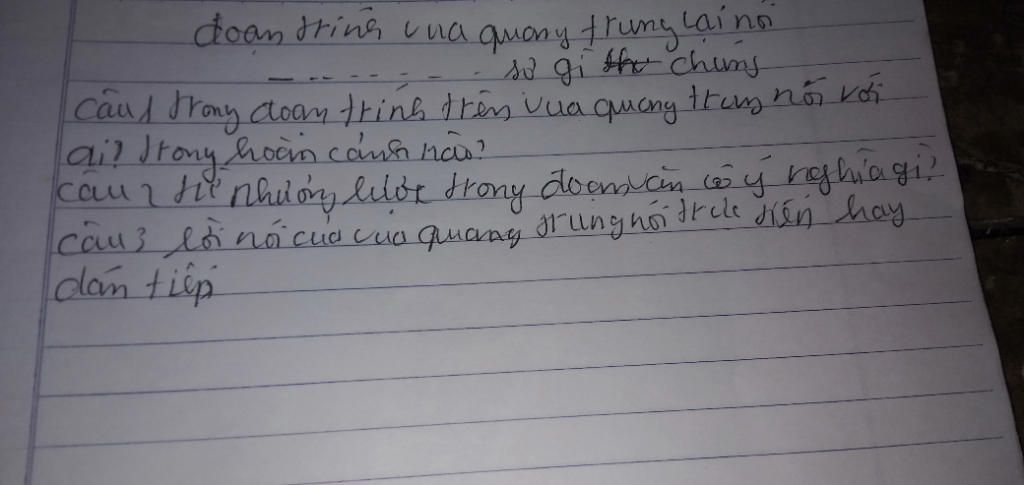 đoạn trính vua quang trung lại nói
_ _ _ _ _ _ _ . sợ gì chúng
câu 1 trong đoạn trính trên vua quang trung nói với
ai? trong hoàn cảnh nào?
câu 2 từ phương lược trong đoạn văn có ý nghĩa gì?
câu 3 lời nói của vua quang trung nói trưc tiếp hay
dán tiếp